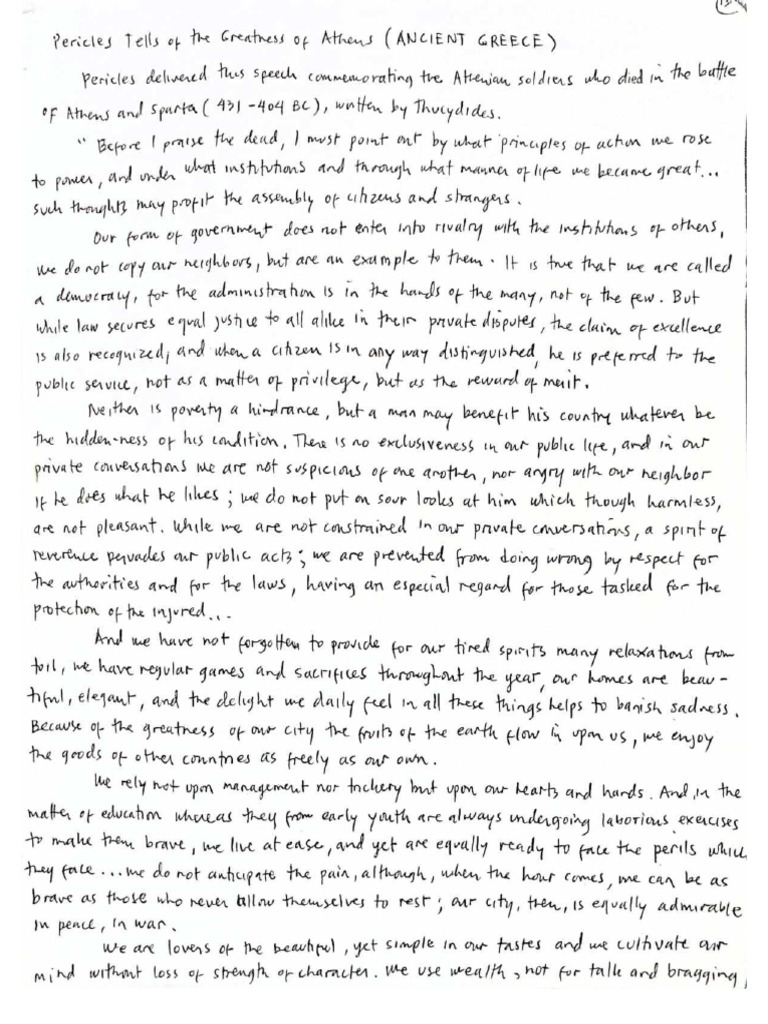 Pericles Tells of the Greatness of Athens (ANCIENT GREECE)
Pericles delivered this speech commemorating the Athenian soldiers who died in the battle
of Athens and Sparta (431-404 BC), written by Thucydides.
"Before I praise the dead, I must point out by what principles of action we rose
to power, and under what institutions and through what manner of life we became great...
such thoughts may profit the assembly of citizens and strangers.
Our form of government does not enter into rivalry with the institutions of others,
we do not copy our neighbors, but are an example to them. It is true that we are called
a democracy, for the administration is in the hands of the many, not of the few. But
while law secures equal justice to all alike in their private disputes, the claim of excellence
is also recognized; and when a citizen is in any way distinguished, he is preferred to the
public service, not as a matter of privilege, but as the reward of merit.
Neither is poverty a hindrance, but a man may benefit his country whatever be
the hidden-ness of his condition. There is no exclusiveness in our public life, and in our
private conversations we are not suspicious of one another, nor angry with our neighbor
if he does what he likes; we do not put on sour looks at him which though harmless,
are not pleasant. While we are not constrained in our private conversations, a spirit of
reverence pervades our public acts; we are prevented from doing wrong by respect for
the authorities and for the laws, having an especial regard for those tasked for the
protection of the injured...
And we have not forgotten to provide for our tired spirits many relaxations from
toil, we have regular games and sacrifices throughout the year, our homes are beau-
tiful, elegant, and the delight we daily feel in all these things helps to banish sadness.
Because of the greatness of our city the fruits of the earth flow in upon us, we enjoy
the goods of other countries as freely as our own.
We rely not upon management nor trickery but upon our hearts and hands. And, in the
matter of education whereas they from early youth are always undergoing laborious exercises
to make them brave, we live at ease, and yet are equally ready to face the perils which
they face... we do not anticipate the pain, although, when the hour comes, we can be as
brave as those who never allow themselves to rest; our city, then, is equally admirable
in peace, in war.
We are lovers of the beautiful, yet simple in our tastes and we cultivate our
mind without loss of strength of character. We use wealth, not for talk and bragging,